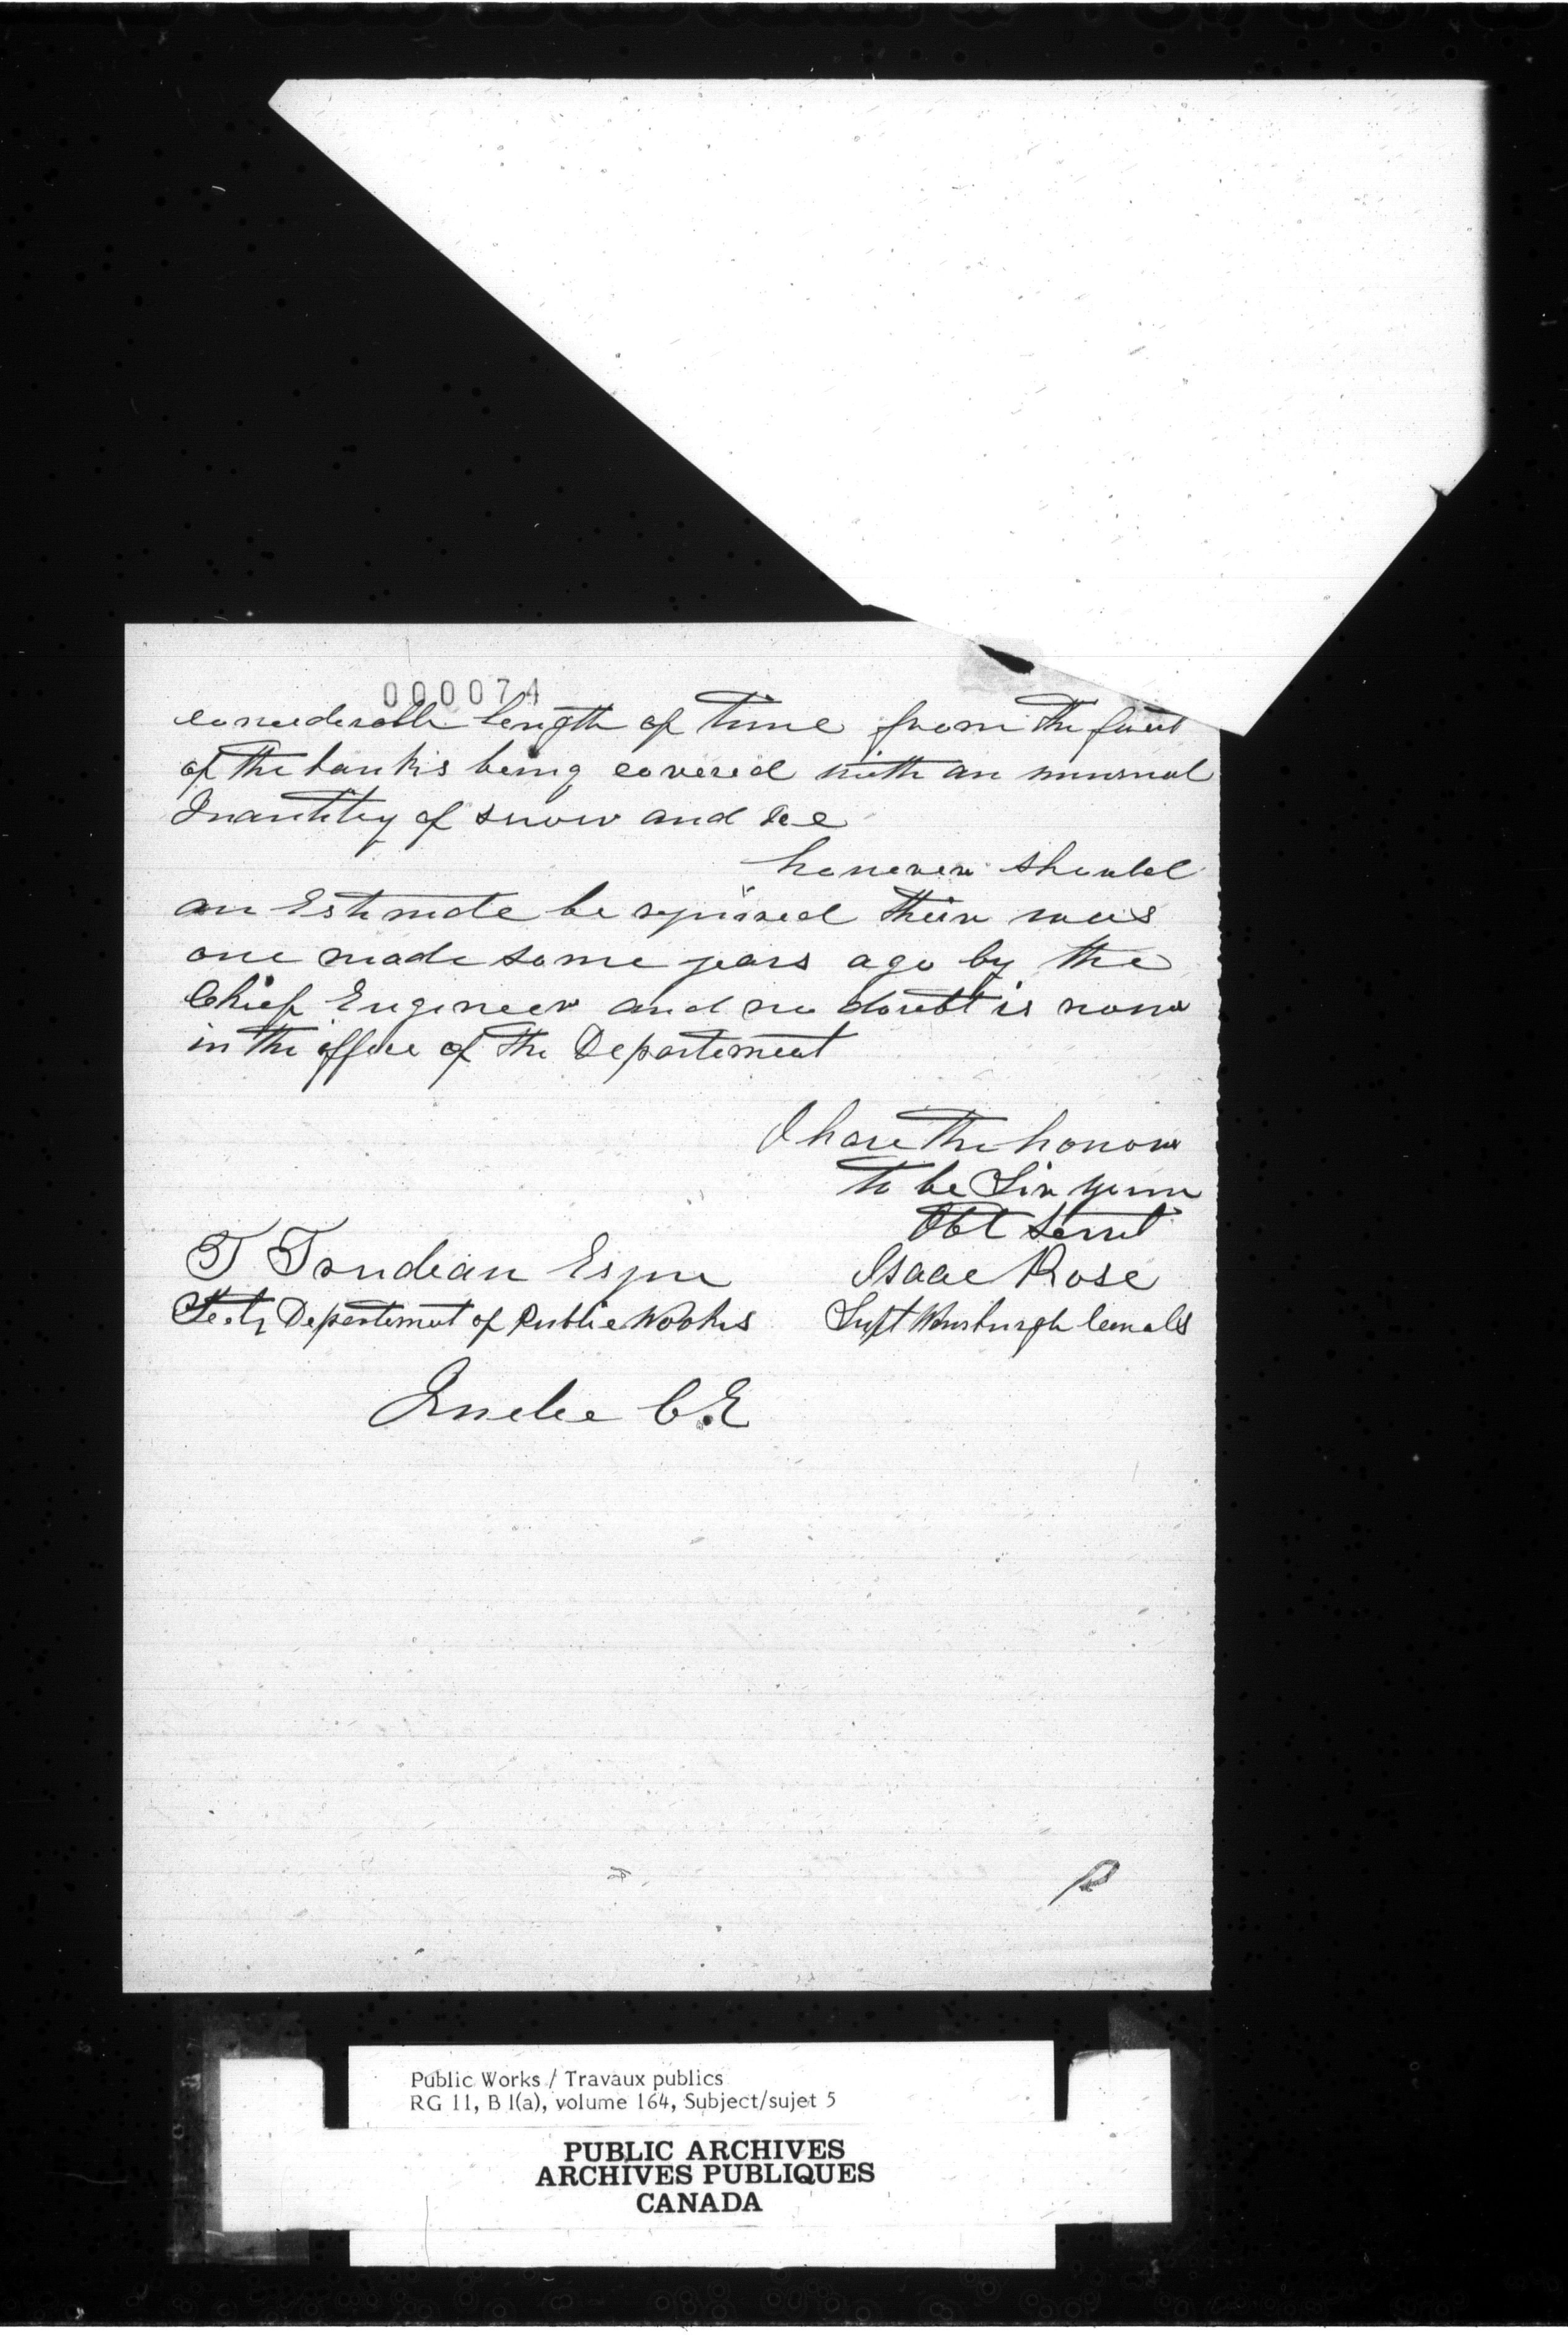 000074
considerable length of time from the fact
of the banks being covered with an unusual
Quantity of snow and Ice
however should
an Estimate be required their was
one made some years ago by the
Chief Engineer and no doubt is now
in the office of the Departement
I have the honour
to be Sir your
Obt Servt
T Trudeau Esqre
Isaac Rose
Secty Departement of Public Works
Supt Wmsburgh Canals
Quebec C.E
Public Works / Travaux publics
RG 11, B 1(a), volume 164, Subject/sujet 5
PUBLIC ARCHIVES
ARCHIVES PUBLIQUES
CANADA